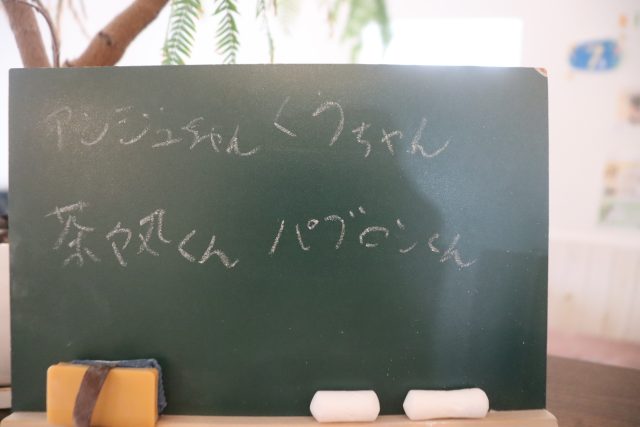 アンジュちゃん くうちゃん
茶々丸くん パブロンくん